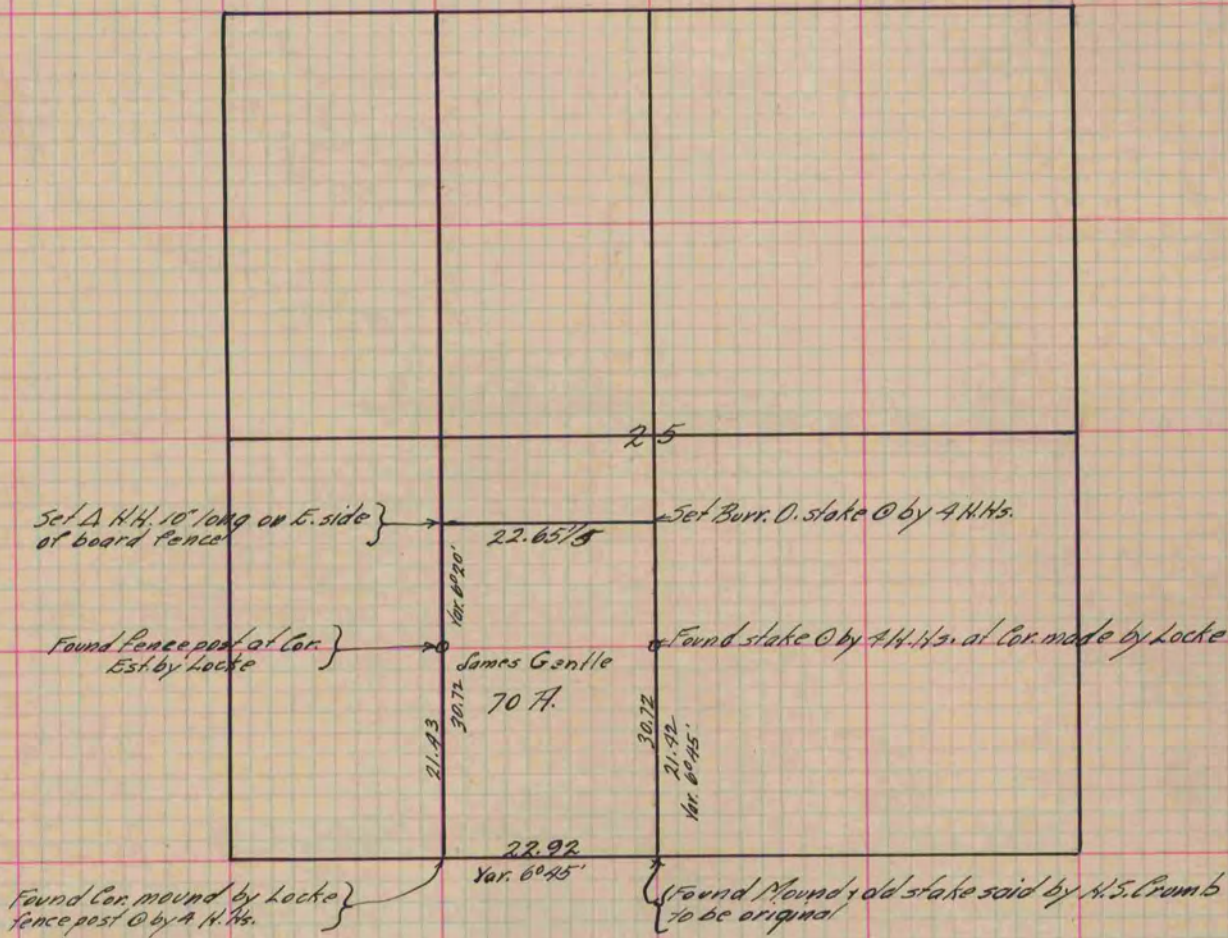 25
Set Δ H.H. 10" long on E. side
of board fence
Set Burr. O. stake ⊙ by 4 H.Hs.
22.651/5
Var. 6°20'
Found fence post at Cor.
Est. by Locke
Found stake ⊙ by 4 H.Hs. at Cor. made by Locke
James Gentle
70 A.
30.72
21.43
30.72
21.42
Var. 6°45'
22.92
Var. 6°45'
Found Cor. mound by Locke
fence post ⊙ by 4 H.Hs.
Found Mound & old stake said by H.S. Crumb
to be original